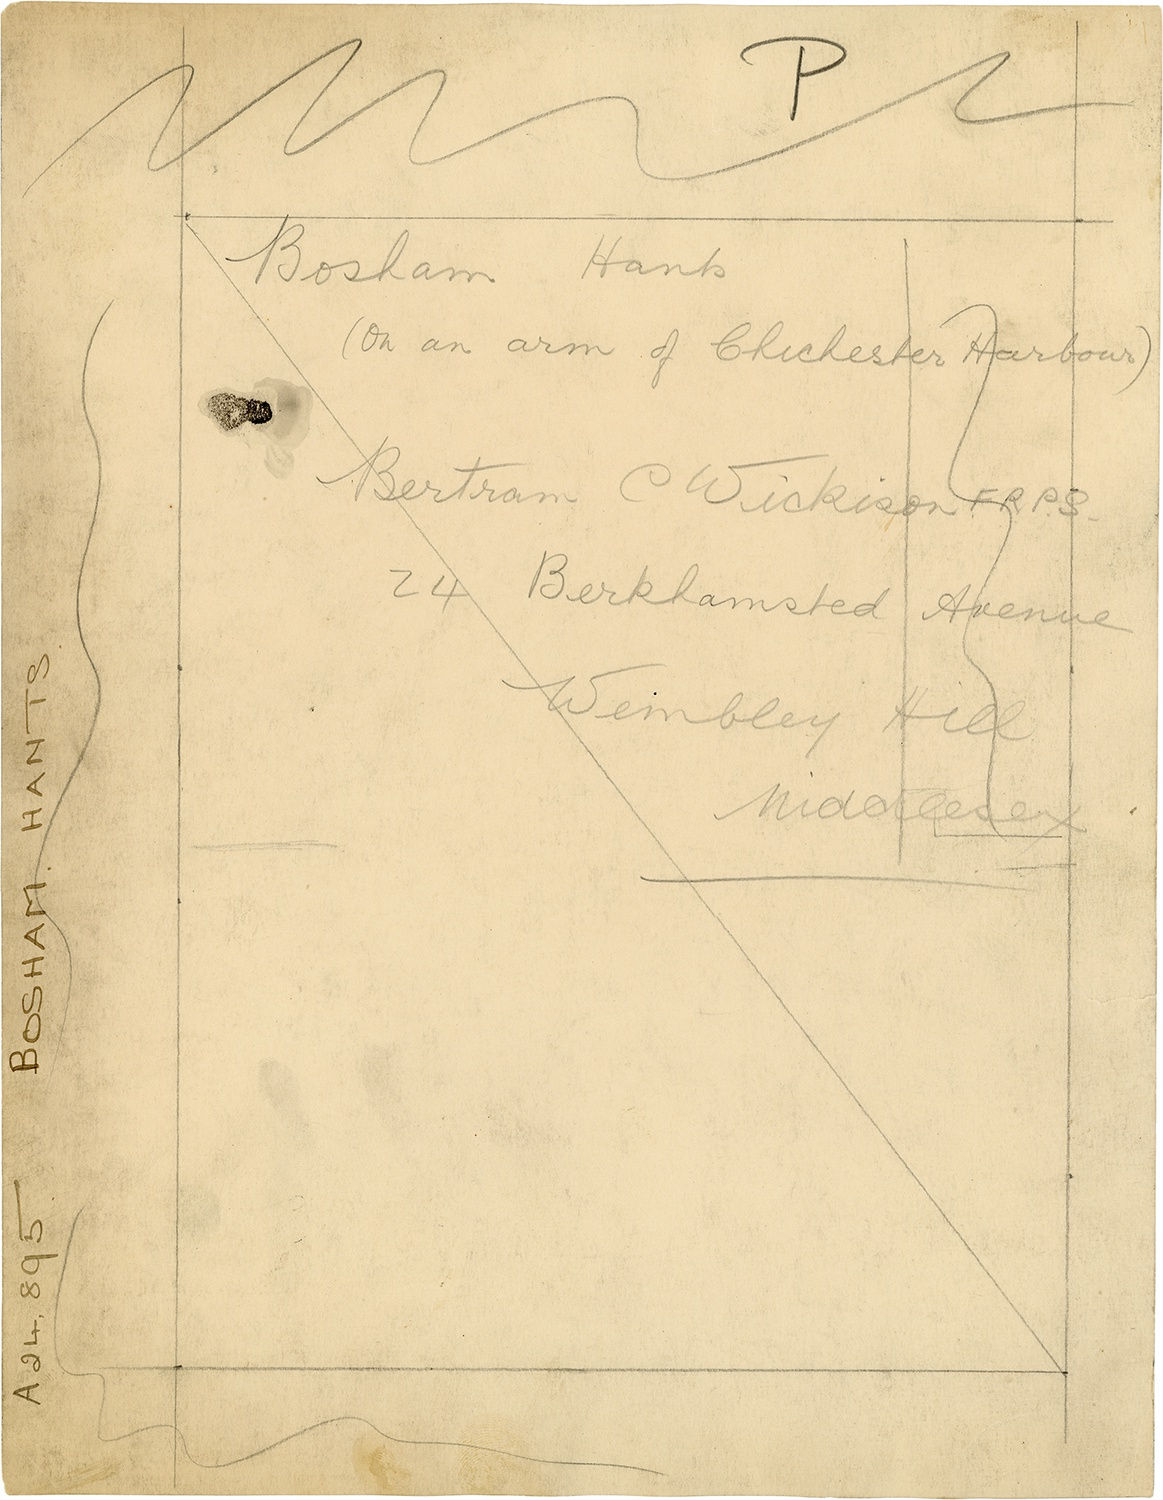 P
Bosham Hants
(On an arm of Chichester Harbour)
Bertram C Wickison F.R.P.S.
24 Berkhamsted Avenue
Wembley Hill
Middlesex
A24,895 BOSHAM. HANTS.